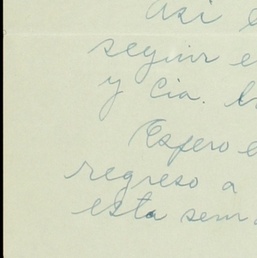 Así
seguir e
y Cia.
Espero e
regreso a
esta sem